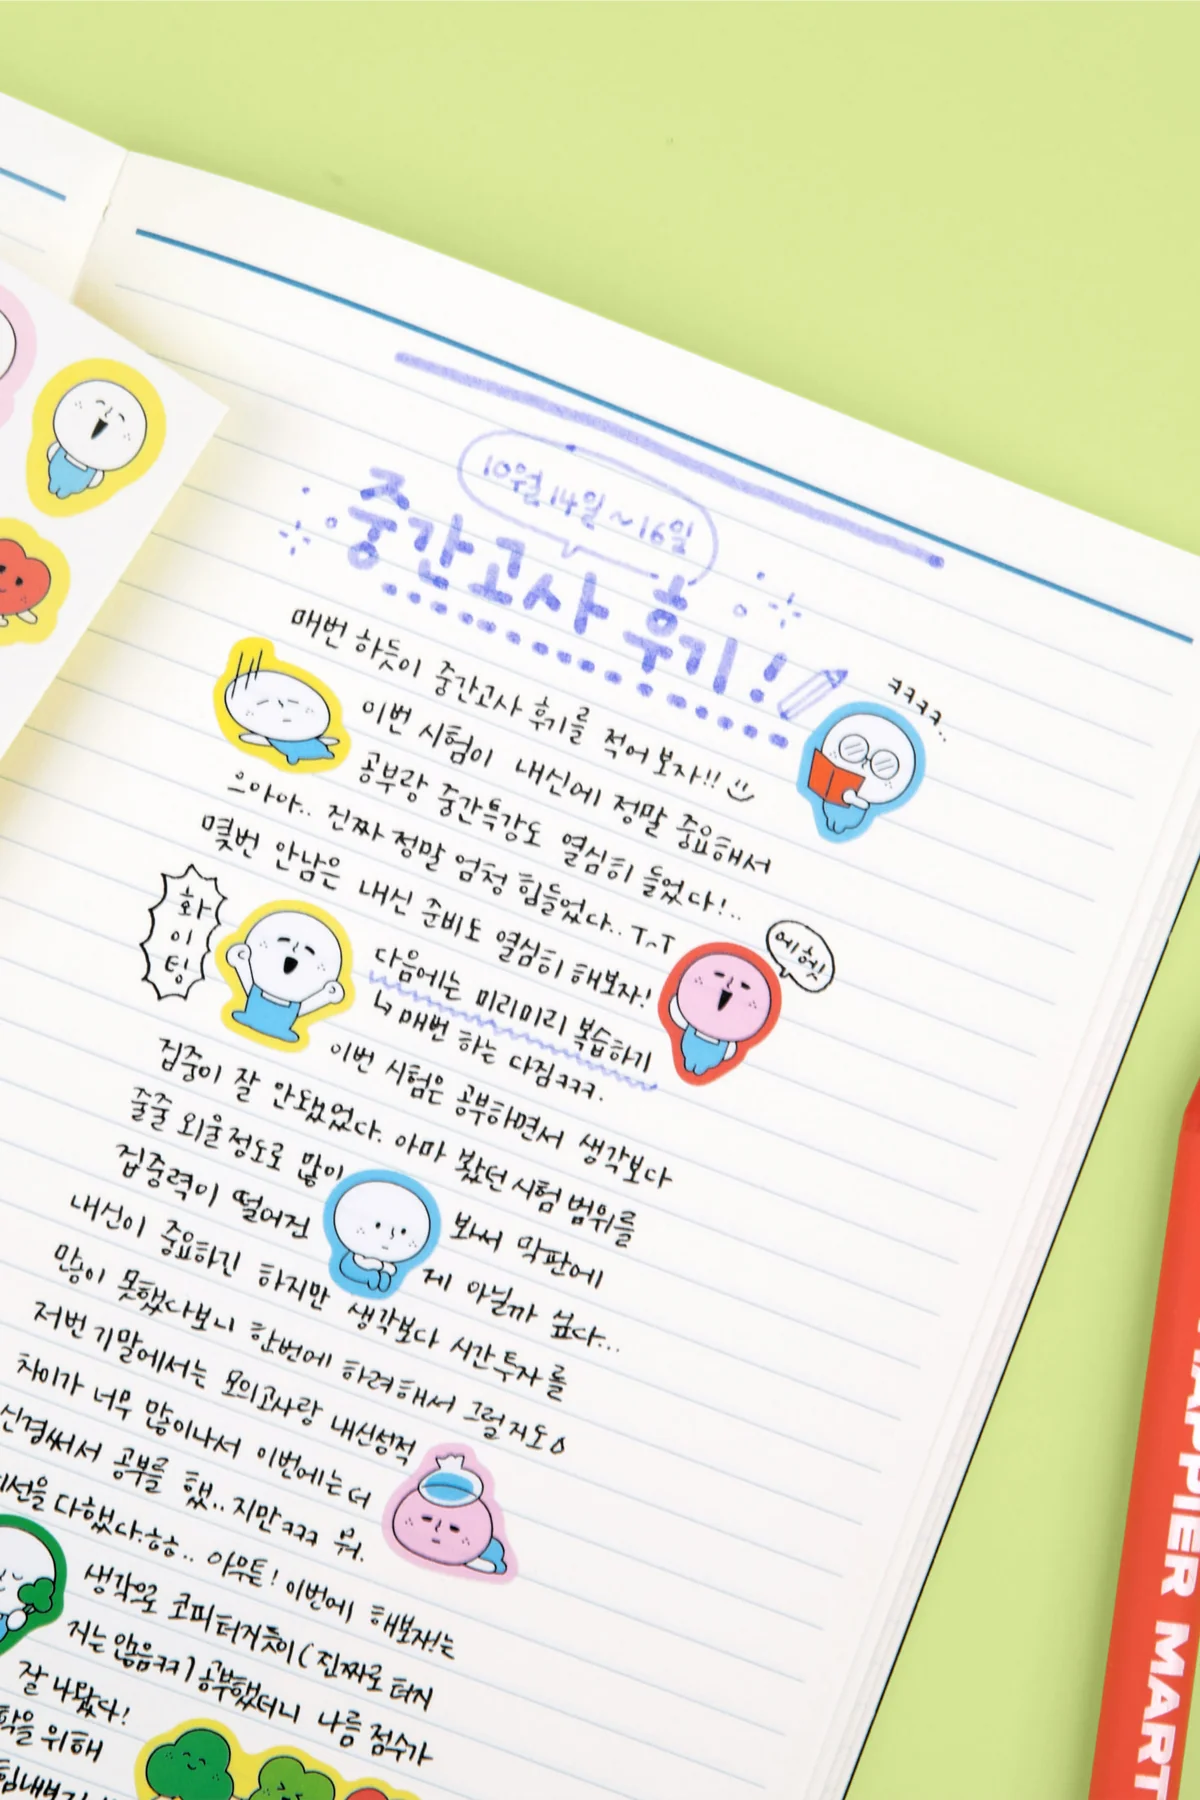 10월 14일 ~ 16일
중간고사 후기!
ㅋㅋㅋㅋ..
매번 하듯이 중간고사 후기를 적어보자!!
이번 시험이 내신에 정말 중요해서
공부랑 중간특강도 열심히 들었다!..
으아아.. 진짜 정말 엄청 힘들었다.. T^T
몇번 안남은 내신 준비도 열심히 해보자!
에헷
화이팅
다음에는 미리미리 복습하기
↳ 매번 하는 다짐ㅋㅋㅋ.
이번 시험은 공부하면서 생각보다
집중이 잘 안됐었다. 아마 봤던 시험 범위를
줄줄 외울정도로 많이 봐서 막판에
집중력이 떨어진 게 아닐까 싶다...
내신이 중요하긴 하지만 생각보다 시간 투자를
많이 못했다보니 한번에 하려해서 그럴지도
저번 기말에서는 모의고사랑 내신성적
차이가 너무 많이나서 이번에는 더
신경써서 공부를 했..지만ㅋㅋㅋ 뭐.
선을 다했다.ㅎㅎ.. 아무튼! 이번에 해보자!는
생각으로 코피터지듯이 (진짜로 터지
지는 않음ㅋㅋ) 공부했더니 나름 점수가
잘 나왔다!
위해
HAPPIER MART